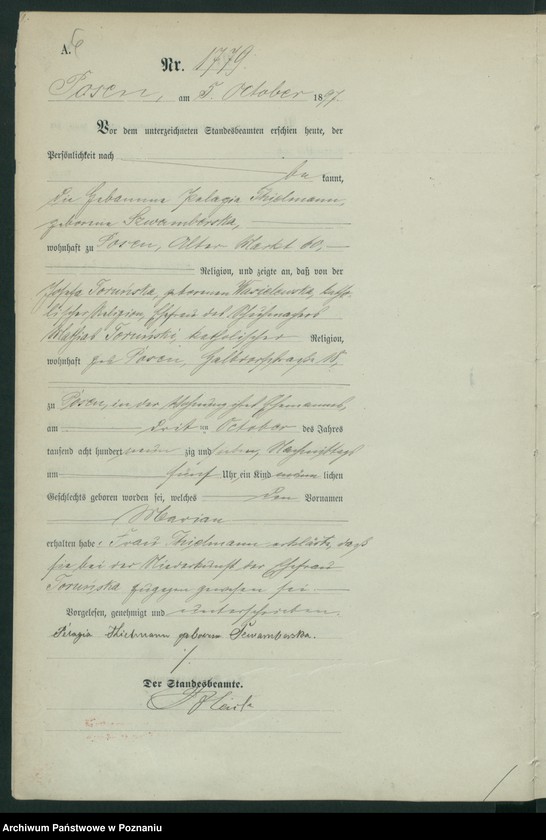 A. 6
Nr. 1779.
Posen, am 5. October 1897.
Vor dem unterzeichneten Standesbeamten erschien heute, der
Persönlichkeit nach
be kannt,
die Hebamme Pelagia Thielmann,
geborene Szwamberska,
wohnhaft zu Posen, Alter Markt 60,
Religion, und zeigte an, daß von der
Josefa Toruńska, geborenen Wasielewska, katho-
lischer Religion, Ehefrau des Schuhmachers
Mathias Toruński, katholischer Religion,
wohnhaft zu Posen,
zu Posen, in der Wohnung ihres Ehemannes,
am dritten October des Jahres
tausend acht hundert neun zig und sieben, Nachmittags
um fünf Uhr ein Kind männ lichen
Geschlechts geboren worden sei, welches den Vornamen
Marian
erhalten habe. Frau Thielmann erklärte, daß
sie bei der Niederkunft der Ehefrau
Toruńska zugegen gewesen sei
Vorgelesen, genehmigt und unterschrieben.
Pelagia Thielmann geborene Szwamberska.
Der Standesbeamte.
Archiwum Państwowe w Poznaniu